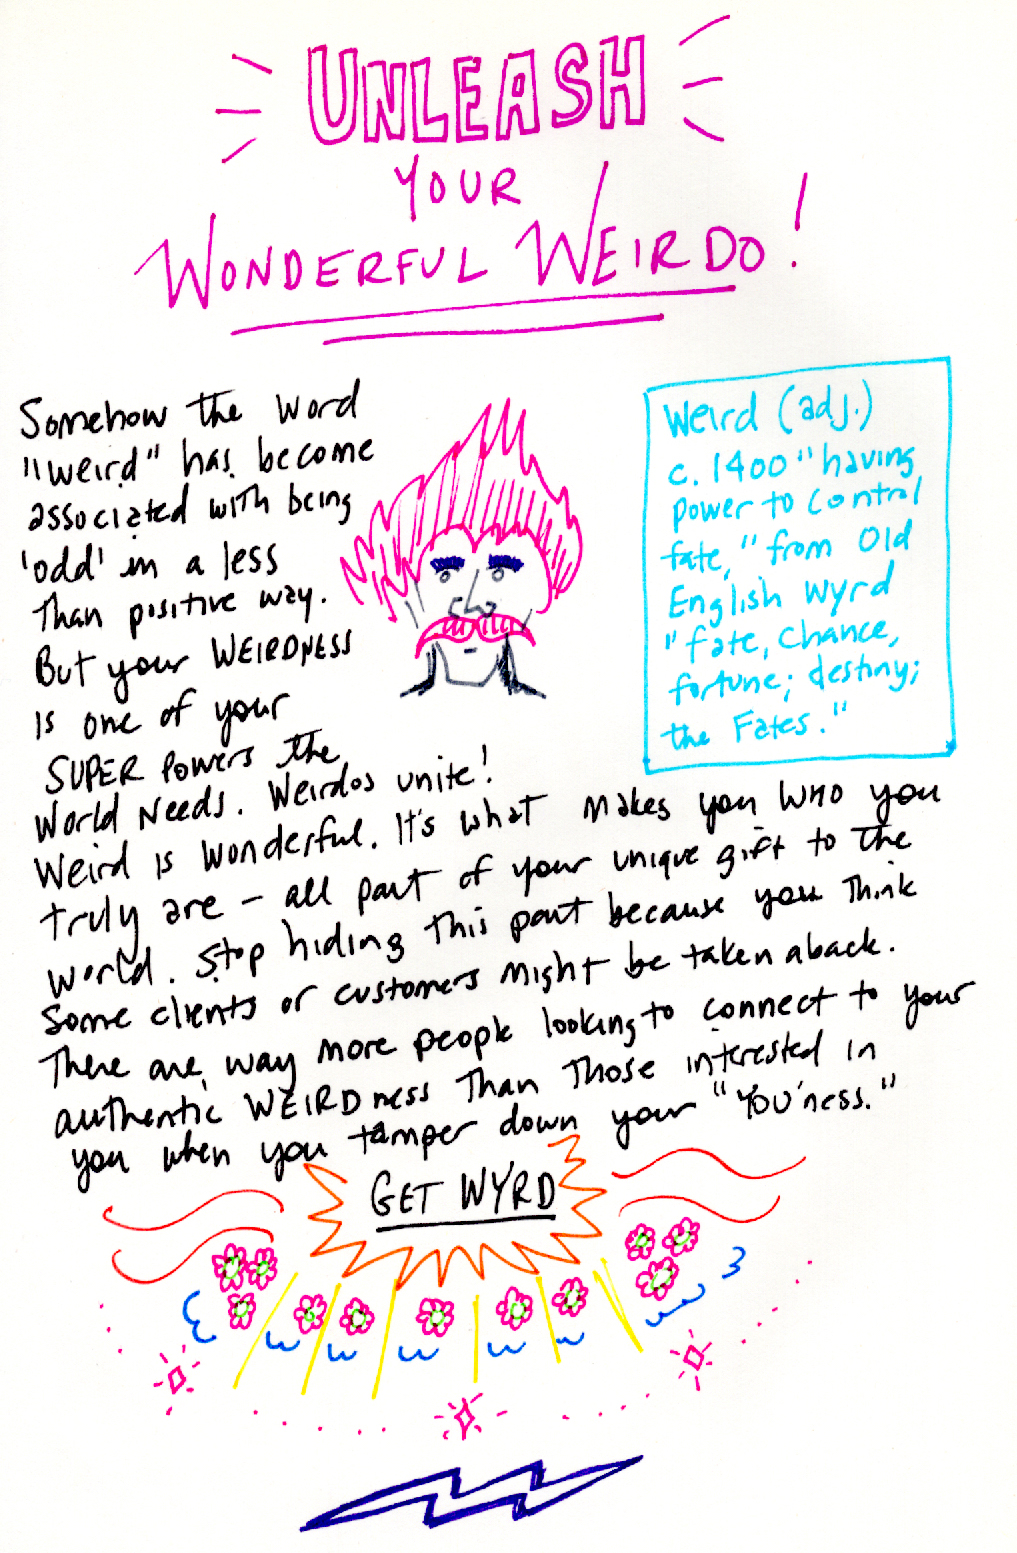 UNLEASH
YOUR
WONDERFUL WEIRDO!
Somehow the word
"weird" has become
associated with being
'odd' in a less
Than positive way.
But your WEIRDNESS
is one of your
SUPER Powers the
World Needs. Weirdos unite!
Weird is wonderful. It's what makes you WHO you
truly are - all part of your unique gift to the
world. Stop hiding this part because you think
some clients or customers might be taken aback.
There are way more people looking to connect to your
authentic WEIRDness Than Those interested in
you when you tamper down your "YOU'ness."
Weird (adj.)
c. 1400 "having
power to control
fate," from Old
English wyrd
"fate, chance,
fortune; destiny;
the Fates."
GET WYRD